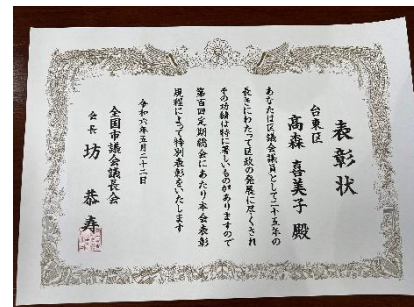 表彰状
台東区
高森喜美子殿
あなたは区議会議員として二十五年の
長きにわたって区政の発展に尽くされ
その功績は特に著しいものがありますので
第百回定期総会にあたり本会表彰
規程によって特別表彰をいたします
令和六年五月二十二日
全国市議会議長会
会長 坊 恭寿